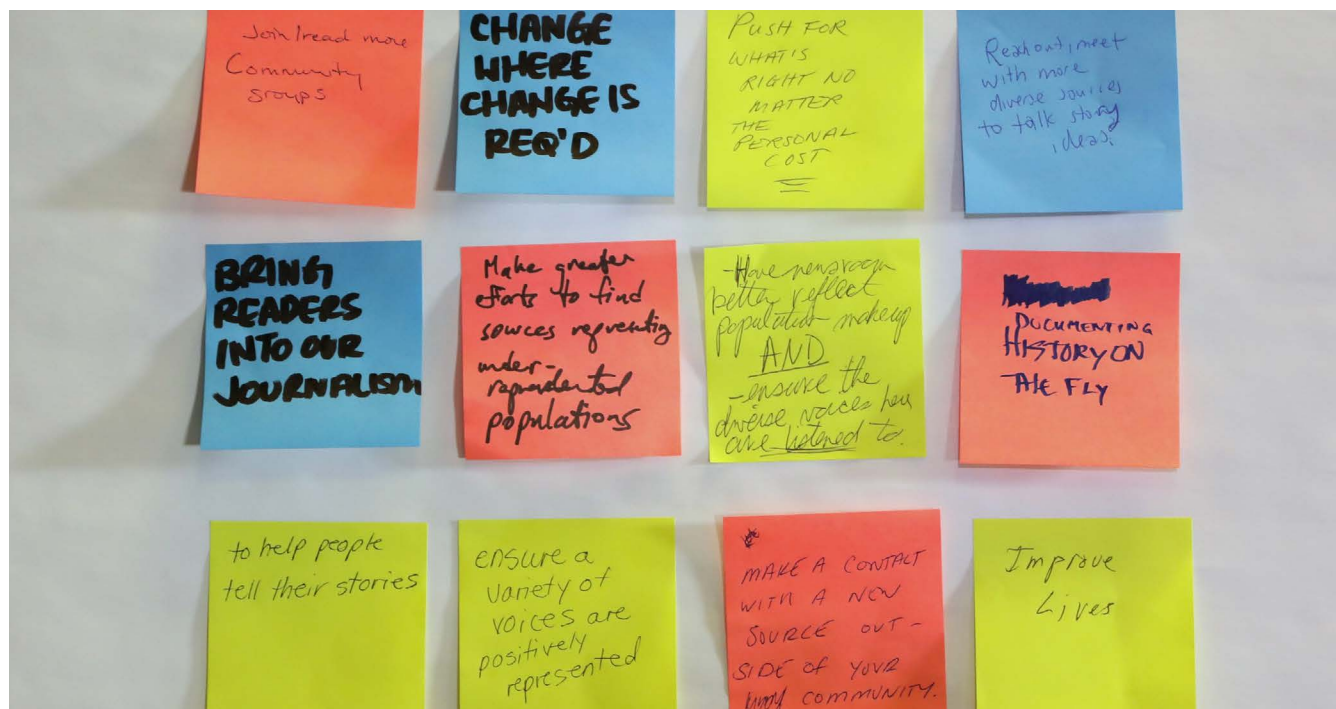 Join/read more
Community
groups
CHANGE
WHERE
CHANGE IS
REQ'D
PUSH FOR
WHAT'S
RIGHT NO
MATTER
THE
PERSONAL
COST
Reach out, meet
with more
diverse sources
to talk story
ideas.
BRING
READERS
INTO OUR
JOURNALISM
Make greater
efforts to find
sources representing
under-
represented
populations
-Have newsroom
better reflect
population makeup
AND
-ensure the
diverse voices here
are listened to.
DOCUMENTING
HISTORY ON
THE FLY
to help people
tell their stories
ensure a
variety of
voices are
positively
represented
MAKE A CONTACT
WITH A NEW
SOURCE OUT-
SIDE OF YOUR
COMMUNITY.
Improve
Lives